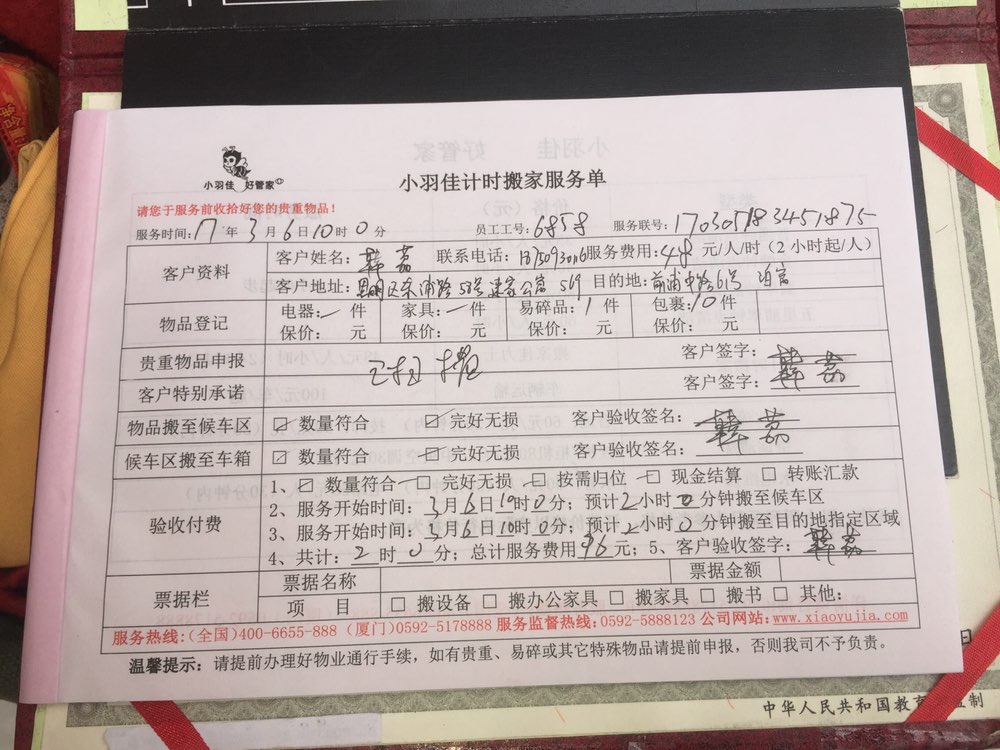 小羽佳 好管家
小羽佳计时搬家服务单
请您于服务前收拾好您的贵重物品！
服务时间：17年3月6日10时0分 员工工号：6858 服务联号：
客户资料 客户姓名： 联系电话： 服务费用：48元/人/时（2小时起/人）
客户地址：思明区 目的地：前埔中路61号
物品登记 电器： 件 家具： 件 易碎品：1件 包裹：10件
保价： 元 保价： 元 保价： 元 保价： 元
贵重物品申报 客户签字：
客户特别承诺 客户签字：
物品搬至候车区 ☑ 数量符合 ☑ 完好无损 客户验收签名：
候车区搬至车箱 ☑ 数量符合 ☑ 完好无损 客户验收签名：
验收付费 1、☑ 数量符合 ☑ 完好无损 ☑ 按需归位 ☑ 现金结算 □ 转账汇款
2、服务开始时间：3月6日10时0分；预计2小时0分钟搬至候车区
3、服务开始时间：3月6日10时0分；预计2小时0分钟搬至目的地指定区域
4、共计：2时0分；总计服务费用96元；5、客户验收签字：
票据栏 票据名称 票据金额
项 目 □ 搬设备 □ 搬办公家具 □ 搬家具 □ 搬书 □ 其他：
服务热线：（全国）400-6655-888（厦门）0592-5178888 服务监督热线：0592-5888123 公司网站：www.xiaoyujia.com
温馨提示：请提前办理好物业通行手续，如有贵重、易碎或其它特殊物品请提前申报，否则我司不予负责。
中华人民共和国教育 监制